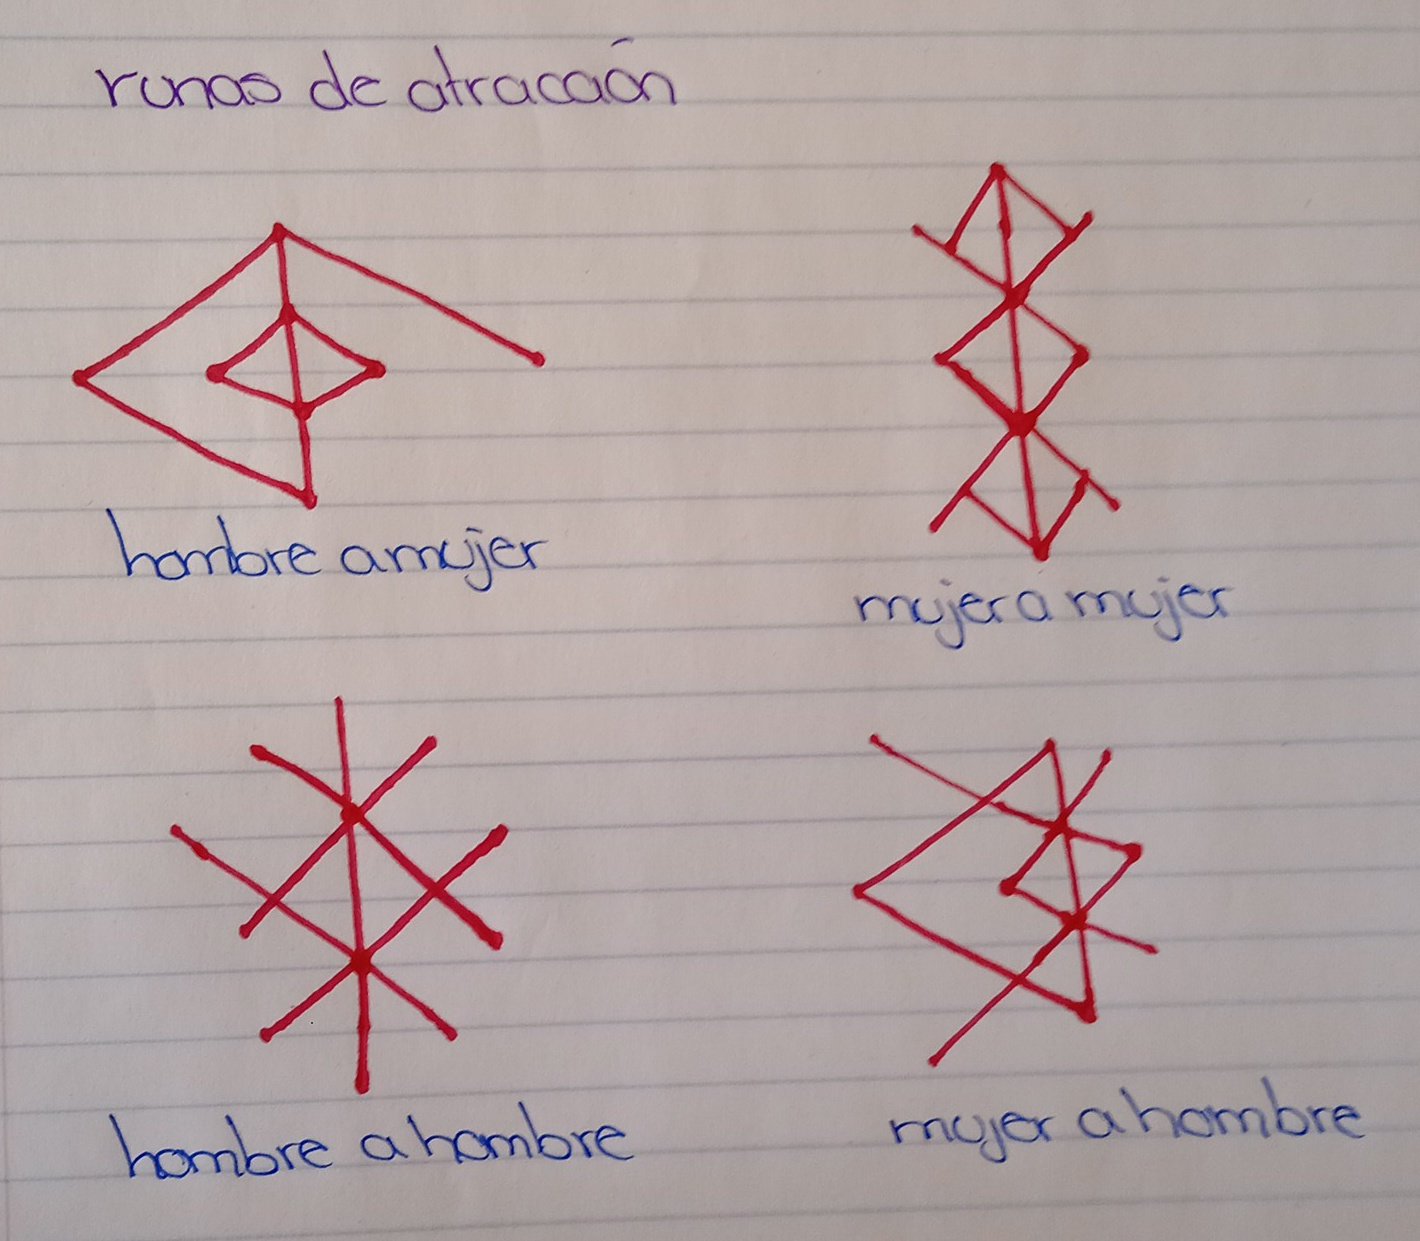 runas de atracción
hombre a mujer
mujer a mujer
hombre a hombre
mujer a hombre